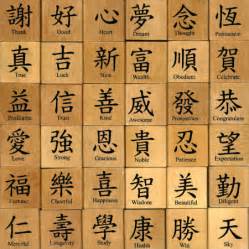 謝 好 心 夢 念 恆
Thank Good Heart Dream Thought Perseverance
真 吉 新 富 順
True Luck New Wealth Obedient
益 信 善 威 發 恭
Profitable Kind Awesome Prosperous Congratulate
愛 強 恩 貴 忍
Love Strong Gracious Noble Patience
福 樂 喜 智 美 勤
Fortune Cheerful Happiness Wisdom Beautiful Diligent
仁 壽 學 康 快 天
Merciful Longevity Study Health Sky